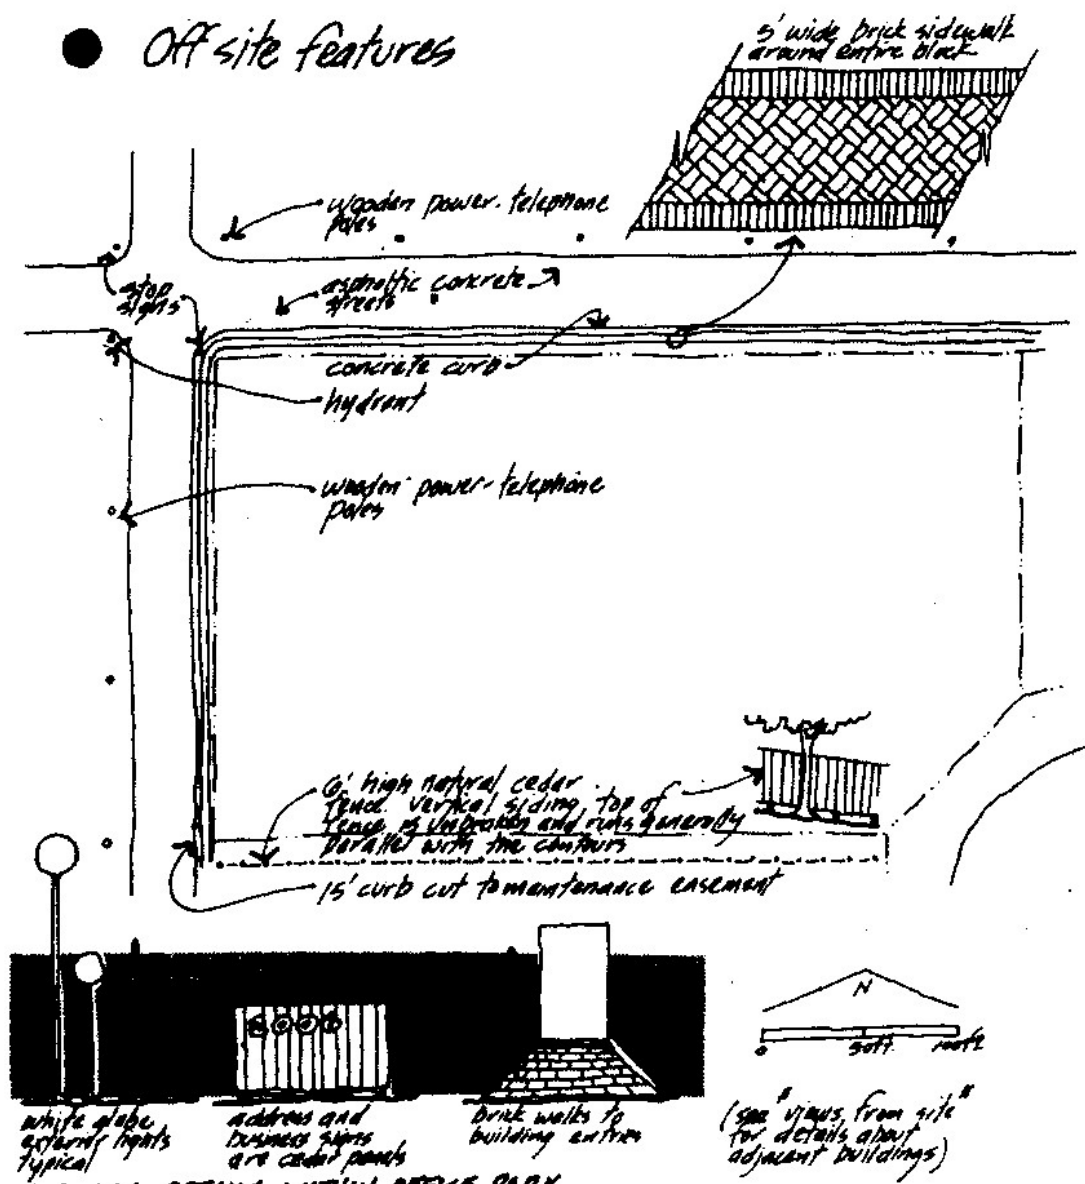 Off site features
5' wide brick sidewalk
around entire block
wooden power-telephone
poles
stop
signs
asphaltic concrete
streets
concrete curb
hydrant
wooden power-telephone
poles
6' high natural cedar
fence. vertical siding, top of
fence is unbroken and runs generally
parallel with the contours
15' curb cut to maintenance easement
N
0 50ft. 100ft
white globe
exterior lights
typical
address and
business signs
are cedar panels
brick walks to
building entries
(see "views from site"
for details about
adjacent buildings)
OFFICE PARK